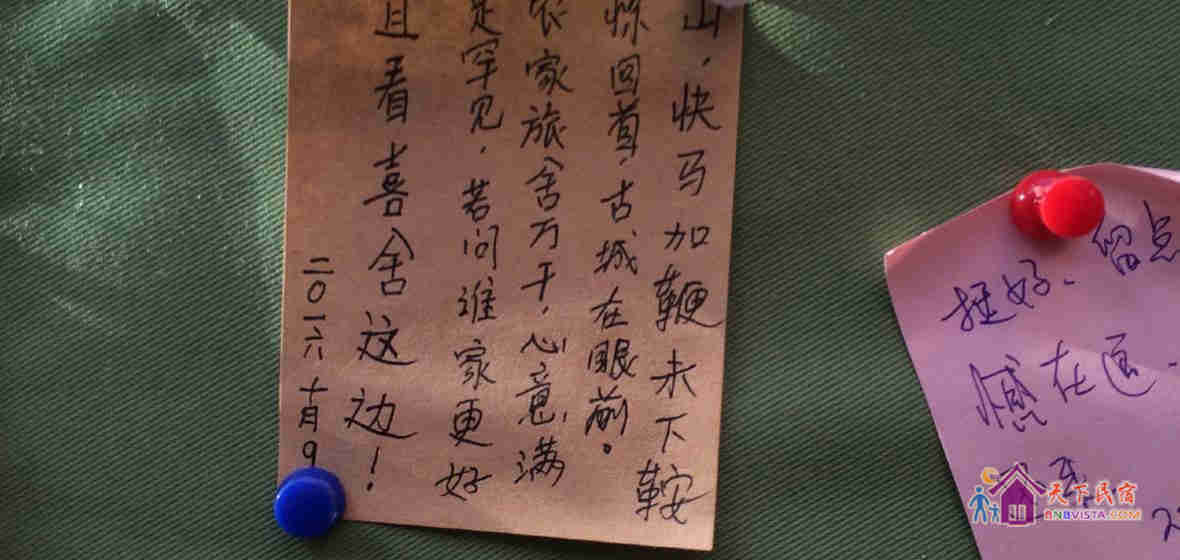 山，快马加鞭未下鞍
惊回首，古城在眼前。
农家旅舍万千，心意满
是罕见，若问谁家更好
且看喜舍这边！
二〇一六十月9
挺好、留点
憾在逼.
天下民宿
BNBVISTA.COM